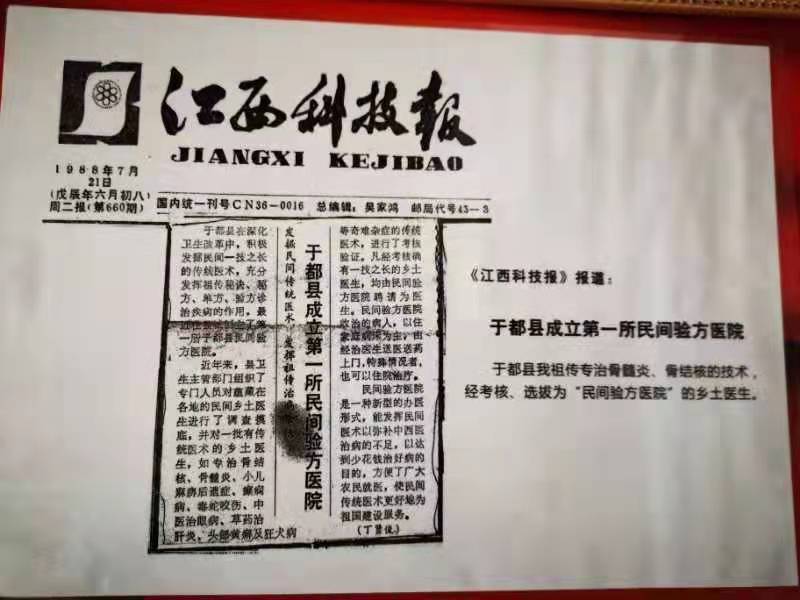 江西科技报
JIANGXI KEJIBAO
1988年7月
21日
(戊辰年六月初八)
周二报(第660期)
国内统一刊号CN36-0016 总编辑:吴家鸿 邮局代号43-3
于都县在深化
卫生改革中,积极
发掘民间一技之长
的传统医术,充分
发挥祖传秘诀、秘
方、单方、验方诊
治疾病的作用,最
一所于都县民间验
方医院。
近年来,县卫
生主管部门组织了
专门人员对蕴藏在
各地的民间乡土医
生进行了调查摸
底,并对一批有传
统医术的乡土医
生,如专治骨结
核、骨髓炎、小儿
麻痹后遗症、癫痫
病、毒蛇咬伤、中
医治眼病、草药治
肝炎、头部黄癣及狂犬病
发掘民间传统医术 发挥祖传治
于都县成立第一所民间验方医院
等奇难杂症的传统
医术,进行了考核
验证。凡经考核确
有一技之长的乡土
医生,均由民间验
方医院聘请为医
生。民间验方医院
收治的病人,以住
家庭病床为主,由
经治医生送医送药
上门,特殊情况者,
也可以住院治疗。
民间验方医院
是一种新型的办医
形式,能发挥民间
医术以弥补中西医
治病的不足,以达
到少花钱治好病的
目的,方便了广大
农民就医,使民间
传统医术更好地为
祖国建设服务。
《江西科技报》报道:
于都县成立第一所民间验方医院
于都县我祖传专治骨髓炎、骨结核的技术,
经考核、选拔为“民间验方医院”的乡土医生。